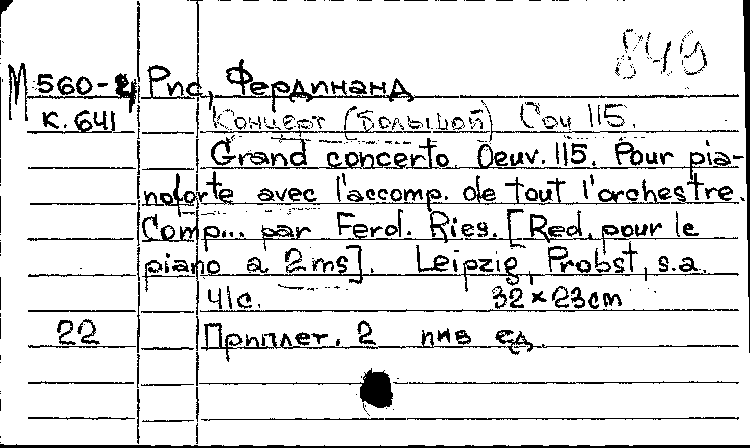 849
М 560-4 Рис, Фердинанд
к. 641 Концерт (Большой) Соч 115.
Grand concerto Oeuv. 115. Pour pia-
noforte avec l'accomp. de tout l'orchestre.
Comp... par Ferd. Ries. [Red. pour le
piano a 2 ms]. Leipzig, Probst, s.a.
41с. 32 × 23 cm
22 Приплет. 2 инв ед